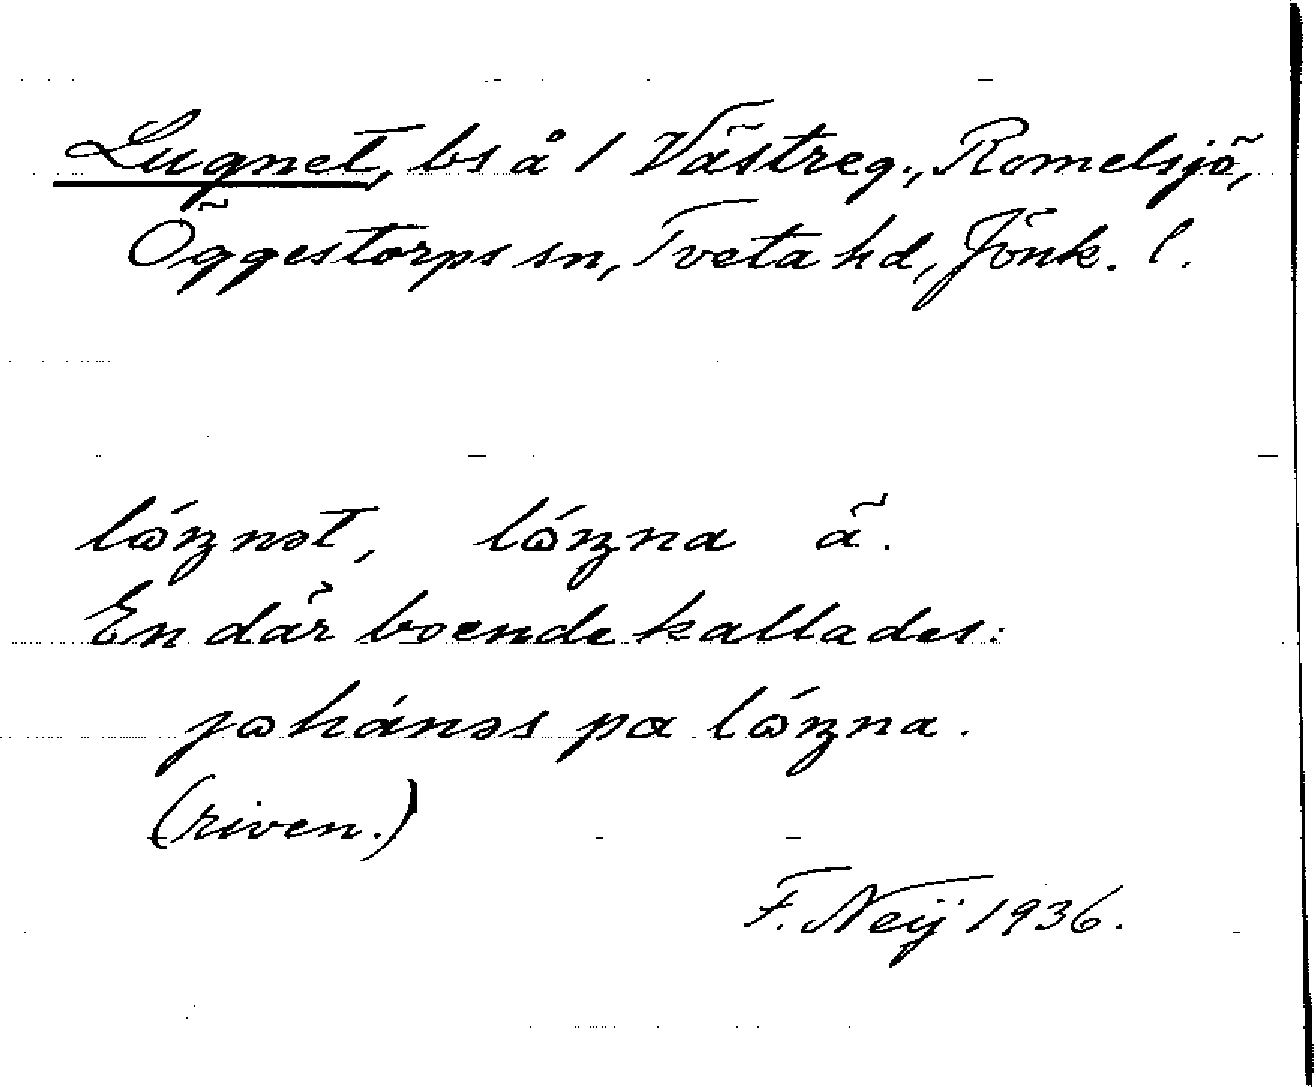 Lugnet, bs å 1 Västreg., Romelsjö,
Öggestorps sn, Tveta hd, Jönk. l.
lɷ́ŋnət, lɷ́ŋna ä.
En där boende kallades:
jɷhánəs pα lɷ́ŋna.
(riven.)
F. Neij 1936.